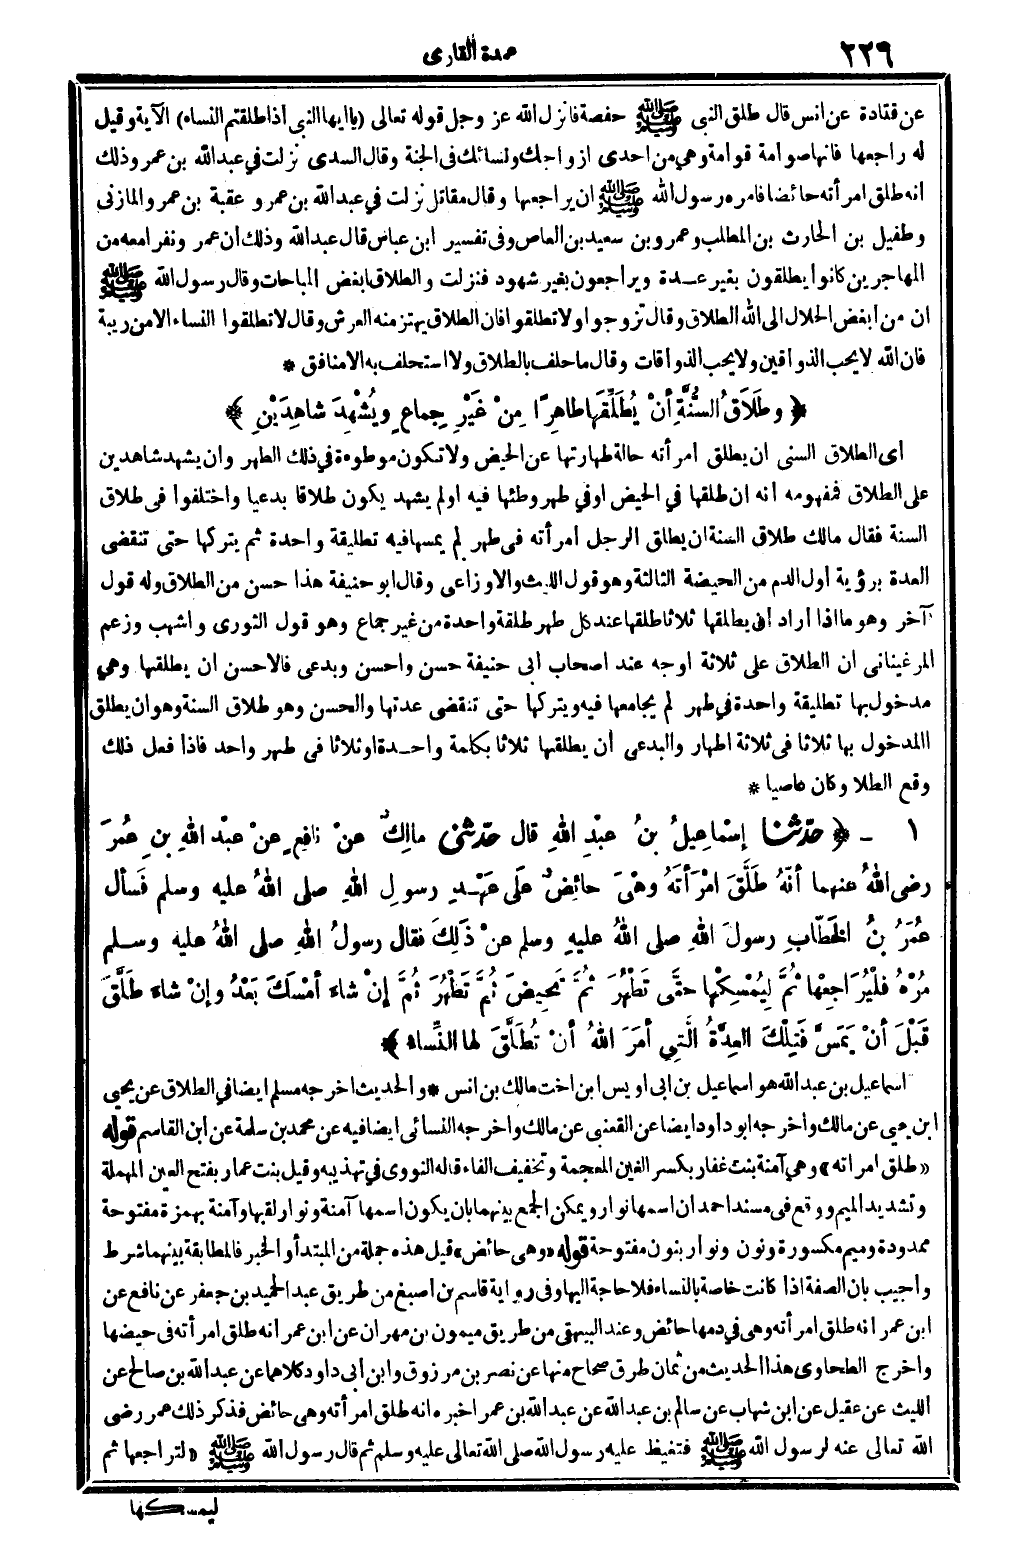 ٢٢٦
عمدة القارى
عن قتادة عن انس قال طلق النبى ﷺ حفصة فانزل الله عز وجل قوله تعالى (ياايها النبى اذا طلقتم النساء) الآية وقيل
له راجعها فانها صوامة قوامة وهي من احدى ازواجك ونسائك فى الجنة وقال السدى نزلت في عبدالله بن عمر وذلك
انه طلق امرأته حائضا فامره رسول الله ﷺ ان يراجعها وقال مقاتل نزلت في عبدالله بن عمر و عقبة بن عمرو المازنى
وطفيل بن الحارث بن المطلب وعمرو بن سعيد بن العاص وفى تفسير ابن عباس قال عبدالله وذلك ان عمر ونفرا معه من
المهاجرين كانوا يطلقون بغير عـدة ويراجعون بغير شهود فنزلت والطلاق ابغض المباحات وقال رسول الله ﷺ
ان من أبغض الحلال الى الله الطلاق وقال تزوجوا ولا تطلقوا فان الطلاق يهتز منه العرش وقال لا تطلقوا النساء الا من ريبة
فان الله لا يحب الذواقين ولا يحب الذواقات وقال ما حلف بالطلاق ولا استحلف به الا منافق *
﴿ وطَلَاقُ السُّنَّةِ أنْ يُطَلِّقَها طاهِرًا مِنْ غَيْرِ جِماعٍ ويُشْهِدَ شاهِدَيْنِ ﴾
أى الطلاق السنى ان يطلق امرأته حالة طهارتها عن الحيض ولا تكون موطوءة في ذلك الطهر وان يشهد شاهدين
على الطلاق فمفهومه انه ان طلقها في الحيض اوفي طهر وطئها فيه اولم يشهد يكون طلاقا بدعيا واختلفوا فى طلاق
السنة فقال مالك طلاق السنة ان يطلق الرجل امرأته فى طهر لم يمسها فيه تطليقة واحدة ثم يتركها حتى تنقضى
العدة برؤية أول الدم من الحيضة الثالثة وهو قول الليث والاوزاعى وقال ابو حنيفة هذا حسن من الطلاق وله قول
آخر وهو ما اذا اراد ان يطلقها ثلاثا طلقها عند كل طهر طلقة واحدة من غير جماع وهو قول الثورى واشهب وزعم
المرغينانى ان الطلاق على ثلاثة اوجه عند اصحاب ابى حنيفة حسن واحسن وبدعى فالاحسن ان يطلقها وهي
مدخول بها تطليقة واحدة في طهر لم يجامعها فيه ويتركها حتى تنقضى عدتها والحسن وهو طلاق السنة وهو ان يطلق
االمدخول بها ثلاثا فى ثلاثة اطهار والبدعى أن يطلقها ثلاثا بكلمة واحـدة اوثلاثا فى طهر واحد فاذا فعل ذلك
وقع الطلا وكان عاصيا *
١ ـ ﴿ حدّثنا إسْماعِيلُ بنُ عبْدِ اللهِ قال حدّثنى مالِكٌ عنْ نافِعٍ عنْ عبْدِ اللهِ بنِ عُمَرَ
رضى اللهُ عنهما أنَّهُ طَلَّقَ امْرَأتَهُ وهْىَ حائِضٌ علَى عَهْـدِ رسولِ اللهِ صلى اللهُ عليه وسلم فَسألَ
عُمَرُ بنُ الخَطَّابِ رسولَ اللهِ صلى اللهُ عليهِ وسلم عنْ ذٰلِكَ فقال رسولُ اللهِ صلى اللهُ عليه وسـلم
مُرْهُ فلْيُرَاجِعْها ثُمَّ لِيُمْسِكْها حتَّى تَطْهُرَ ثُمَّ تَحِيضَ ثُمَّ تَطْهُرَ ثُمَّ إنْ شاءَ أمْسَكَ بَعْدُ وإنْ شاءَ طَلَّقَ
قَبْلَ أنْ يَمَسَّ فَتِلْكَ العِدَّةُ الَّتِي أمَرَ اللهُ أنْ تُطَلَّقَ لها النِّساءُ ﴾
اسماعيل بن عبدالله هو اسماعيل بن ابى اويس ابن اخت مالك بن انس * والحديث اخرجه مسلم ايضا في الطلاق عن يحيى
ابن يحيى عن مالك واخرجه ابو داود ايضا عن القعنبى عن مالك واخرجه النسائى ايضا فيه عن محمد بن سلمة عن ابن القاسم قوله
«طلق امراته» وهي آمنة بنت غفار بكسر الغين المعجمة وتخفيف الفاء قاله النووى في تهذيبه وقيل بنت عمار بفتح العين المهملة
وتشديد الميم ووقع فى مسند احمد ان اسمها نوار ويمكن الجمع بينهما بان يكون اسمها آمنة ونوار لقبها وآمنة بهمزة مفتوحة
ممدودة وميم مكسورة ونون ونوار بنون مفتوحة قوله «وهى حائض» قيل هذه جملة من المبتدأ والخبر فالمطابقة بينهما شرط
واجيب بان الصفة اذا كانت خاصة بالنساء فلا حاجة اليها وفى رواية قاسم بن اصبغ من طريق عبد الحميد بن جعفر عن نافع عن
ابن عمر انه طلق امرأته وهى في دمها حائض وعند البيهقى من طريق ميمون بن مهران عن ابن عمر انه طلق امرأته فى حيضها
واخرج الطحاوى هذا الحديث من ثمان طرق صحاح منها عن نصر بن مرزوق وابن أبى داود كلاهما عن عبدالله بن صالح عن
الليث عن عقيل عن ابن شهاب عن سالم بن عبد الله عن عبدالله بن عمر اخبره انه طلق امرأته وهى حائض فذكر ذلك عمر رضى
الله تعالى عنه لرسول الله ﷺ فتغيظ عليه رسول الله صلى الله تعالى عليه وسلم ثم قال رسول الله ﷺ «لتراجعها ثم
ليمسكها